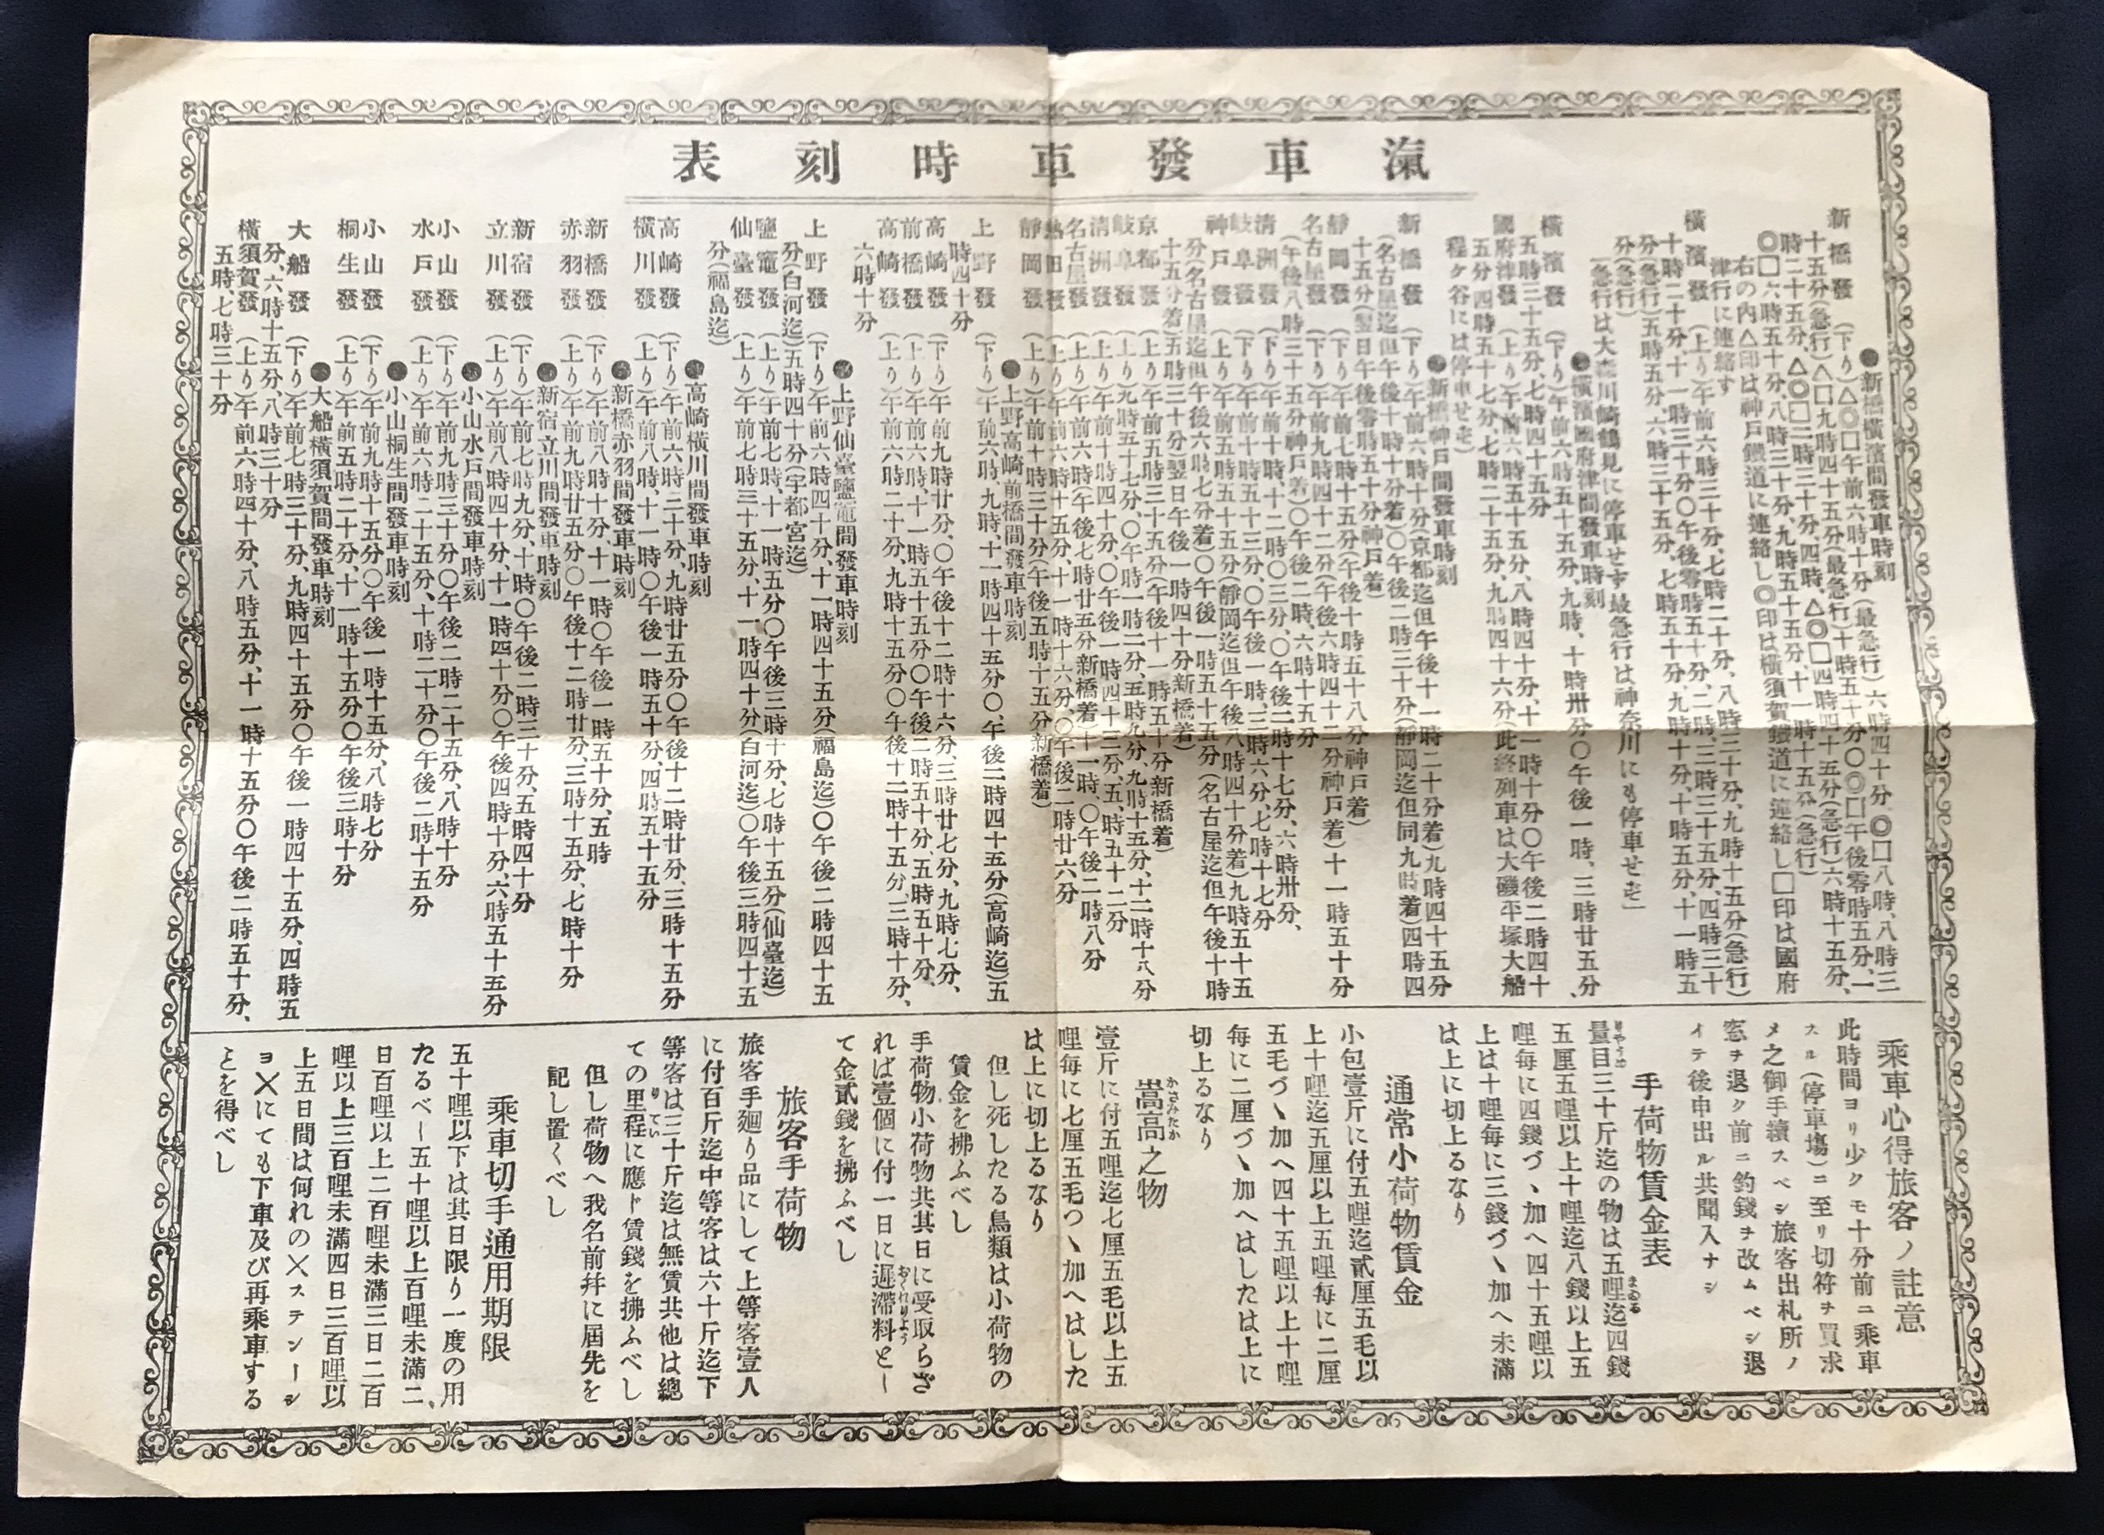 汽車發車時刻表
●新橋橫濱間發車時刻
新橋發 (下り)△◎□午前六時十分(最急行)六時四十分◎□八時、八時三
十五分(急行)△□九時四十五分(最急行)十時五十分〇◎□午後零時五分、一
時二十五分、△◎□二時三十分、四時、△◎□四時四十五分(急行)六時十五分、
◎□六時五十分、八時三十分、九時五十五分、十一時十五分(急行)
右の内△印は神戶鐵道に連絡し◎印は橫須賀鐵道に連絡し□印は國府
津行に連絡す
橫濱發 (上り)午前六時三十分、七時二十分、八時三十分、九時十五分(急行)
十時二十分、十一時三十分〇午後零時五十分、二時、三時三十五分、四時三十
分(急行)五時五分、六時三十五分、七時五十分、九時十分、十時五分、十一時五
分(急行)
「急行は大森川崎鶴見に停車せす最急行は神奈川にも停車せず」
●橫濱國府津間發車時刻
橫濱發 (下り)午前六時五十五分、九時、十時卅分〇午後一時、三時廿五分、
五時三十五分、七時四十五分
國府津發 (上り)午前六時五十五分、八時四十分、十一時十分〇午後二時四十
五分、四時五十七分、七時二十五分、九時四十六分此終列車は大磯平塚大船
程ケ谷には停車せず
●新橋神戶間發車時刻
新橋發 (下り)午前六時十分京都迄但午後十一時二十分着)九時四十五分
(名古屋迄但午後十時十分着)〇午後二時三十分(靜岡迄但同九時着)四時四
十五分(翌日午後零時五十分神戶着)
靜岡發 (下り)午前七時十五分(午後十時五十八分神戶着)
名古屋發 (下り)午前九時四十二分(午後六時四十二分神戶着)十一時五十分
(午後八時三十五分神戶着)〇午後二時、六時十五分
清洲發 (下り)午前十時十二時〇三分、〇午後二時十七分、六時卅分、
岐阜發 (下り)午前十時五十三分、〇午後一時、三時六分、七時十七分
神戶發 (上り)午前五時五十五分(靜岡迄但午後八時四十分着)九時五十五
分(名古屋迄但午後六時七分着)〇午後一時五十五分(名古屋迄但午後十時
十五分着)五時三十分(翌日午後一時四十分新橋着)
京都發 (上り)午前五時三十五分(午後十一時五十分新橋着)
岐阜發 (上り)九時五十七分、〇午時一時二分、五時九分、九時十五分、十二時十八分
清洲發 (上り)午前十時四十分、〇午後一時四十三分、五時五十二分
名古屋發 (上り)午前六時午後七時廿五分新橋着)十一時、〇午後二時八分
熱田發 (上り)午前六時十五分、十一時十六分、〇午後二時廿六分
靜岡發 (上り)午前十時三十分(午後五時十五分新橋着)
●上野高崎前橋間發車時刻
上野發 (下り)午前六時、九時、十一時四十五分〇午後二時四十五分(高崎迄)五
時四十分
高崎發 (下り)午前九時廿分、〇午後十二時十六分、三時廿七分、九時七分、
前橋發 (上り)午前六時、十一時五十五分〇午後二時五十分、五時五十分、
高崎發 (上り)午前六時二十分、九時十五分〇午後十二時十五分、三時十分、
六時十分
●上野仙臺鹽竈間發車時刻
上野發 (下り)午前六時四十分、十一時四十五分(福島迄)〇午後二時四十五
分(白河迄)五時四十分(宇都宮迄)
鹽竈發 (上り)午前七時、十一時五分〇午後三時十分、七時十五分(仙臺迄)
仙臺發 (上り)午前七時三十五分、十一時四十分(白河迄)〇午後三時四十五
分(福島迄)
●高崎橫川間發車時刻
高崎發 (下り)午前六時二十分、九時廿五分〇午後十二時廿分、三時十五分
橫川發 (上り)午前八時、十一時〇午後一時五十分、四時五十五分
●新橋赤羽間發車時刻
新橋發 (下り)午前八時十分、十一時〇午後一時五十分、五時
赤羽發 (上り)午前九時廿五分〇午後十二時廿分、三時十五分、七時十分
●新宿立川間發車時刻
新宿發 (下り)午前七時九分、十時〇午後二時三十分、五時四十分
立川發 (上り)午前八時四十分、十一時四十分〇午後四時十分、六時五十五分
●小山水戶間發車時刻
小山發 (下り)午前九時三十分〇午後二時二十五分、八時十分
水戶發 (上り)午前六時二十五分、十時二十分〇午後二時十五分
●小山桐生間發車時刻
小山發 (下り)午前九時十五分〇午後一時十五分、八時七分
桐生發 (上り)午前五時二十分、十一時十五分〇午後三時十分
●大船橫須賀間發車時刻
大船發 (下り)午前七時三十分、九時四十五分〇午後一時四十五分、四時五
分、六時十五分、八時三十分
橫須賀發 (上り)午前六時四十分、八時五分、十一時十五分〇午後二時五十分、
五時、七時三十分
乘車心得旅客ノ註意
此時間ヨリ少クモ十分前ニ乘車
スル(停車塲)ニ至リ切符ヲ買求
メ之御手續スベシ旅客出札所ノ
窓ヲ退ク前ニ釣錢ヲ改ムベシ退
イテ後申出ル共聞入ナシ
手荷物賃金表
量目三十斤迄の物は五哩迄四錢
五厘五哩以上十哩迄八錢以上五
哩每に四錢づゝ加へ四十五哩以
上は十哩每に三錢づゝ加へ未滿
は上に切上るなり
通常小荷物賃金
小包壹斤に付五哩迄貳厘五毛以
上十哩迄五厘以上五哩每に二厘
五毛づゝ加へ四十五哩以上十哩
每に二厘づゝ加へはしたは上に
切上るなり
嵩高之物
壹斤に付五哩迄七厘五毛以上五
哩每に七厘五毛つゝ加へはした
は上に切上るなり
但し死したる鳥類は小荷物の
賃金を拂ふべし
手荷物小荷物共其日に受取らざ
れば壹個に付一日に遲滯料とし
て金貳錢を拂ふべし
旅客手荷物
旅客手廻り品にして上等客壹人
に付百斤迄中等客は六十斤迄下
等客は三十斤迄は無賃共他は總
ての里程に應ド賃錢を拂ふべし
但し荷物へ我名前幷に屆先を
記し置くべし
乘車切手通用期限
五十哩以下は其日限り一度の用
たるべし五十哩以上百哩未滿二
日百哩以上二百哩未滿三日二百
哩以上三百哩未滿四日三百哩以
上五日間は何れの〤ステンーシ
ヨ〤にても下車及び再乘車する
ことを得べし